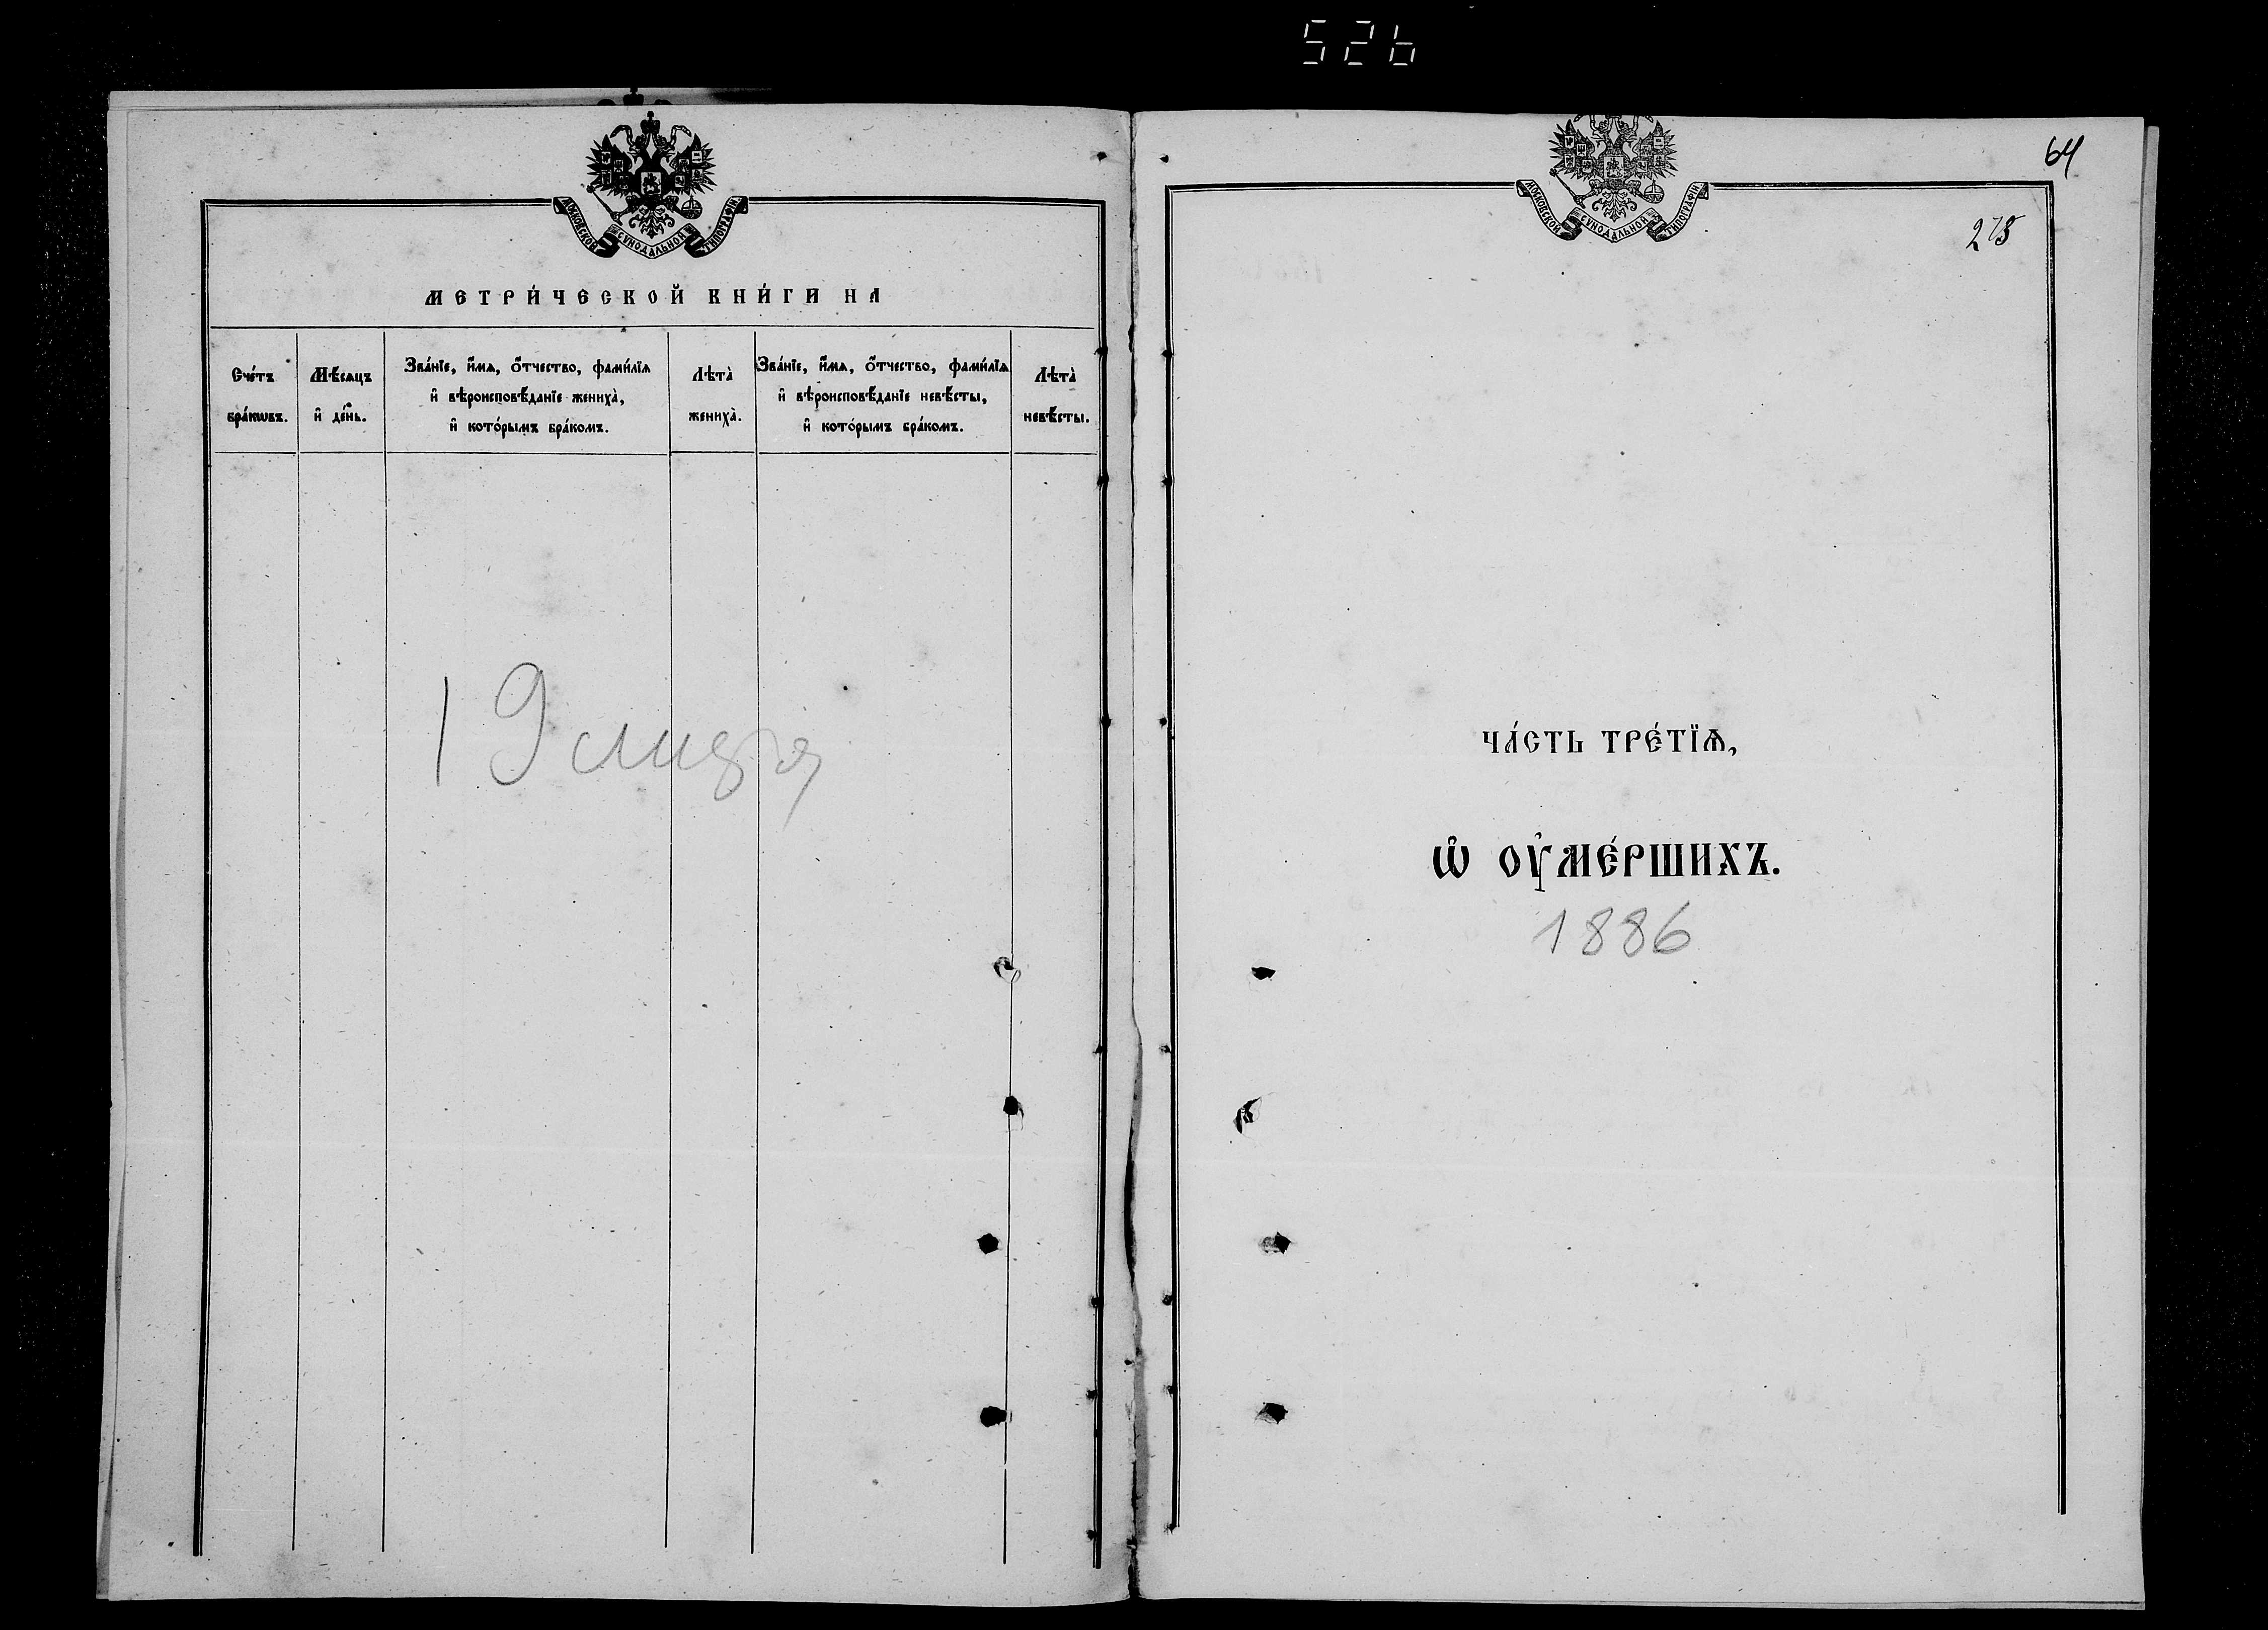 526
МОСКОВСКОЙ СѴНОДАЛЬНОЙ ТИПОГРАФІИ
МЕТРИ́ЧЕСКОЙ КНИ́ГИ НА
Сче́тъ бра́кѡвъ.
Мѣ́сяцъ и҆ де́нь.
Зва́нїе, и҆́мѧ, ѻ҆́тчество, фами́лїѧ
и҆ вѣроисповѣ́данїе жениха̀,
и҆ кото́рымъ бра́комъ.
Лѣта̀ жениха̀.
Зва́нїе, и҆́мѧ, ѻ҆́тчество, фами́лїѧ
и҆ вѣроисповѣ́данїе невѣ́сты,
и҆ кото́рымъ бра́комъ.
Лѣта̀ невѣ́сты.
19
64
МОСКОВСКОЙ СѴНОДАЛЬНОЙ ТИПОГРАФІИ
ЧА́СТЬ ТРЕ́ТЇѦ,
Ѡ҆ ОУ҆МЕ́РШИХЪ.
1886